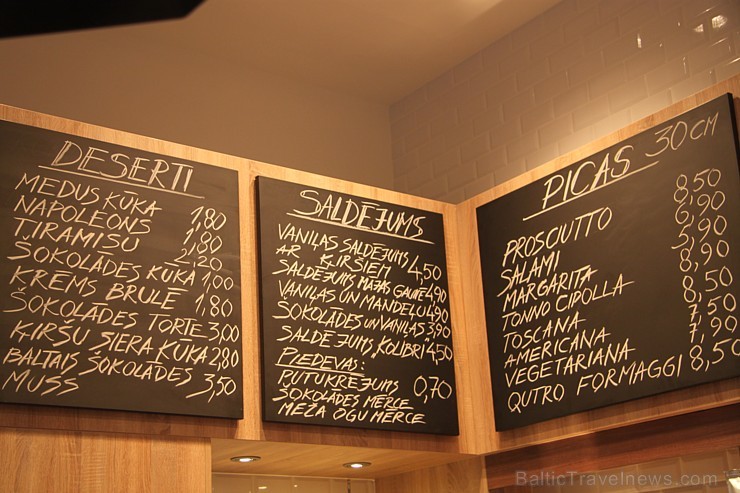 DESERTI
MEDUS KŪKA 1,80
NAPOLEONS 1,80
TIRAMISU 2,20
ŠOKOLĀDES KŪKA 1,00
KRĒMS BRULĒ 1,80
ŠOKOLĀDES TORTE 3,00
ĶIRŠU SIERA KŪKA 2,80
BALTAIS ŠOKOLĀDES 3,50
MUSS
SALDĒJUMS
VANIĻAS SALDĒJUMS
AR ĶIRŠIEM 4,50
SALDĒJUMS MAZAS GAUMĒ 4,90
VANIĻAS UN MANDEĻU 4,90
ŠOKOLĀDES UN VANIĻAS 3,90
SALDĒJUMS „KOLIBRI" 4,50
PIEDEVAS:
PUTUKRĒJUMS 0,70
ŠOKOLĀDES MĒRCE
MEŽA OGU MĒRCE
PICAS 30 CM
PROSCIUTTO 8,50
SALAMI 6,90
MARGARITA 5,90
TONNO CIPOLLA 8,90
TOSCANA 8,50
AMERICANA 7,50
VEGETARIANA 7,90
QUTRO FORMAGGI 8,50
BalticTravelnews.com ©